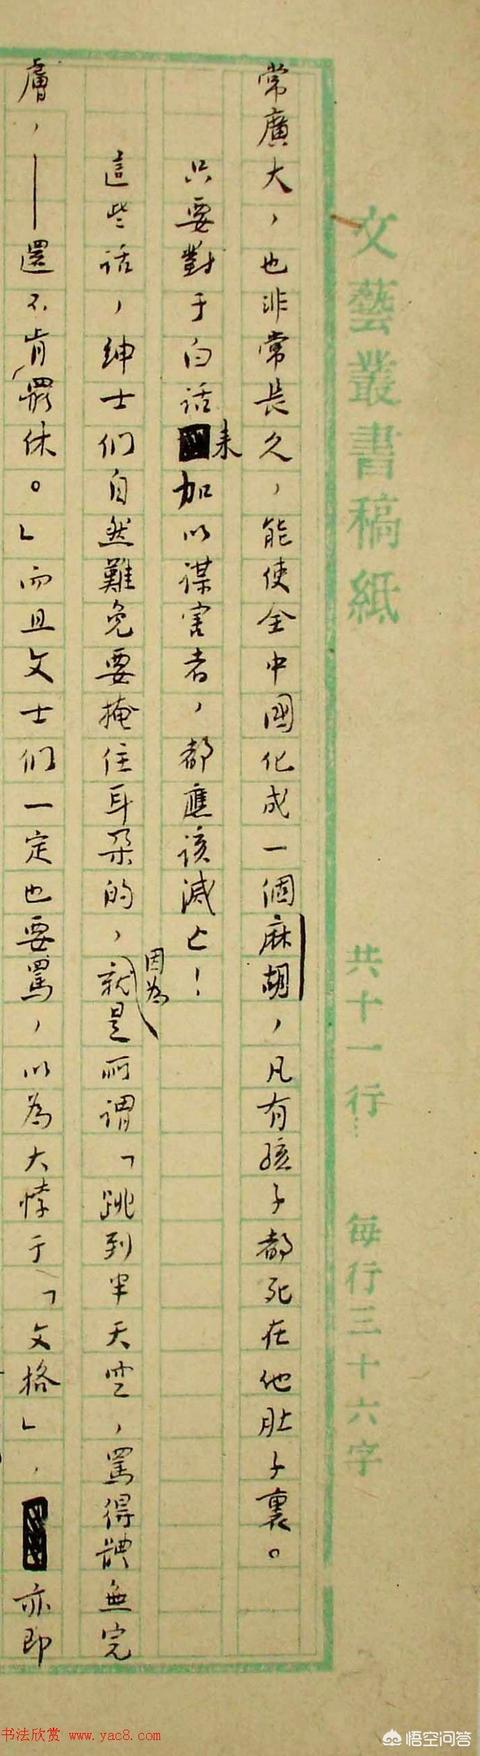 文藝叢書稿紙
共十一行 每行三十六字
常廣大，也非常長久，能使全中國化成一個麻胡，凡有孩子都死在他肚子裏。
只要對于白話來加以謀害者，都應該滅亡！
這些話，紳士们自然難免要掩住耳朵的，因為就是所谓「跳到半天空，罵得體無完
膚，——還不肯罷休。」而且文士们一定也要罵，以為大悖于「文格」，亦即
书法欣赏 www.yac8.com
悟空问答